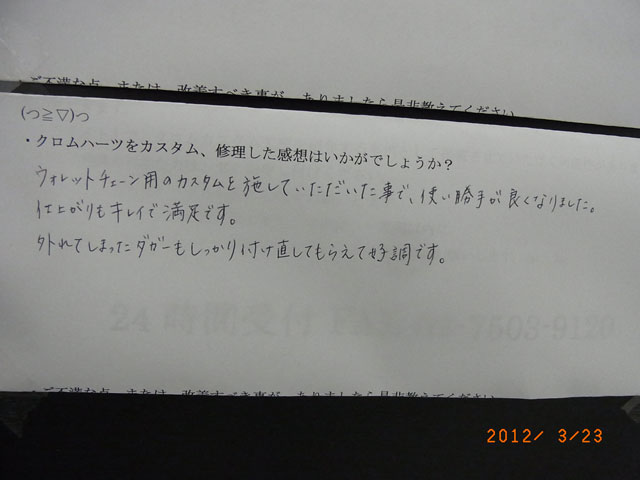 ご不満な点、または、改善すべき事が、ありましたら是非教えてください
(つ≧▽)つ
・クロムハーツをカスタム、修理した感想はいかがでしょうか？
ウォレットチェーン用のカスタムを施していただいた事で、使い勝手が良くなりました。
仕上がりもキレイで満足です。
外れてしまったダガーもしっかり付け直してもらえて好調です。
24時間受付
7503-9120
・ご不満な点、または、改善すべき事が、ありましたら是非教えてください
2012/ 3/23